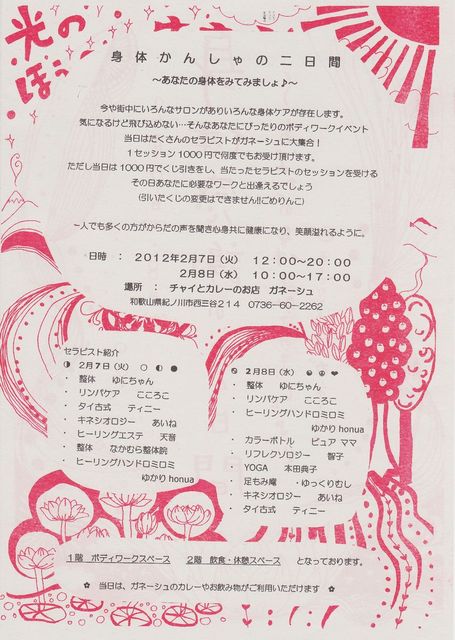 光の
ぼう
身体かんしゃの二日間
～あなたの身体をみてみましょ♪～
今や街中にいろんなサロンがありいろんな身体ケアが存在します。
気になるけど飛び込めない…そんなあなたにぴったりのボディワークイベント
当日はたくさんのセラピストがガネーシュに大集合！
1セッション1000円で何度でもお受け頂けます。
ただし当日は1000円でくじ引きをし、当たったセラピストのセッションを受ける
その日あなたに必要なワークと出逢えるでしょう
(引いたくじの変更はできません!!ごめりんこ)
～一人でも多くの方がからだの声を聞き心身共に健康になり、笑顔溢れるように。
日時 ： 2012年2月7日（火） 12：00～20：00
2月8日（水） 10：00～17：00
場所 ： チャイとカレーのお店 ガネーシュ
和歌山県紀ノ川市西三谷214 0736-60-2262
セラピスト紹介
◑ 2月7日（火） ○ ◐ ●
・ 整体 ゆにちゃん
・ リンパケア こころこ
・ タイ古式 ティニー
・ キネシオロジー あいね
・ ヒーリングエステ 天音
・ 整体 なかむら整体院
・ ヒーリングハンドロミロミ
ゆかり honua
2月8日（水） ☯ ☮ ❤
・ 整体 ゆにちゃん
・ リンパケア こころこ
・ ヒーリングハンドロミロミ
ゆかり honua
・ カラーボトル ピュア ママ
・ リフレクソロジー 智子
・ YOGA 本田典子
・ 足もみ庵 ・ゆっくりむし
・ キネシオロジー あいね
・ タイ古式 ティニー
1階 ボディワークスペース 2階 飲食・休憩スペース となっております。
✿ 当日は、ガネーシュのカレーやお飲み物がご利用いただけます ✿